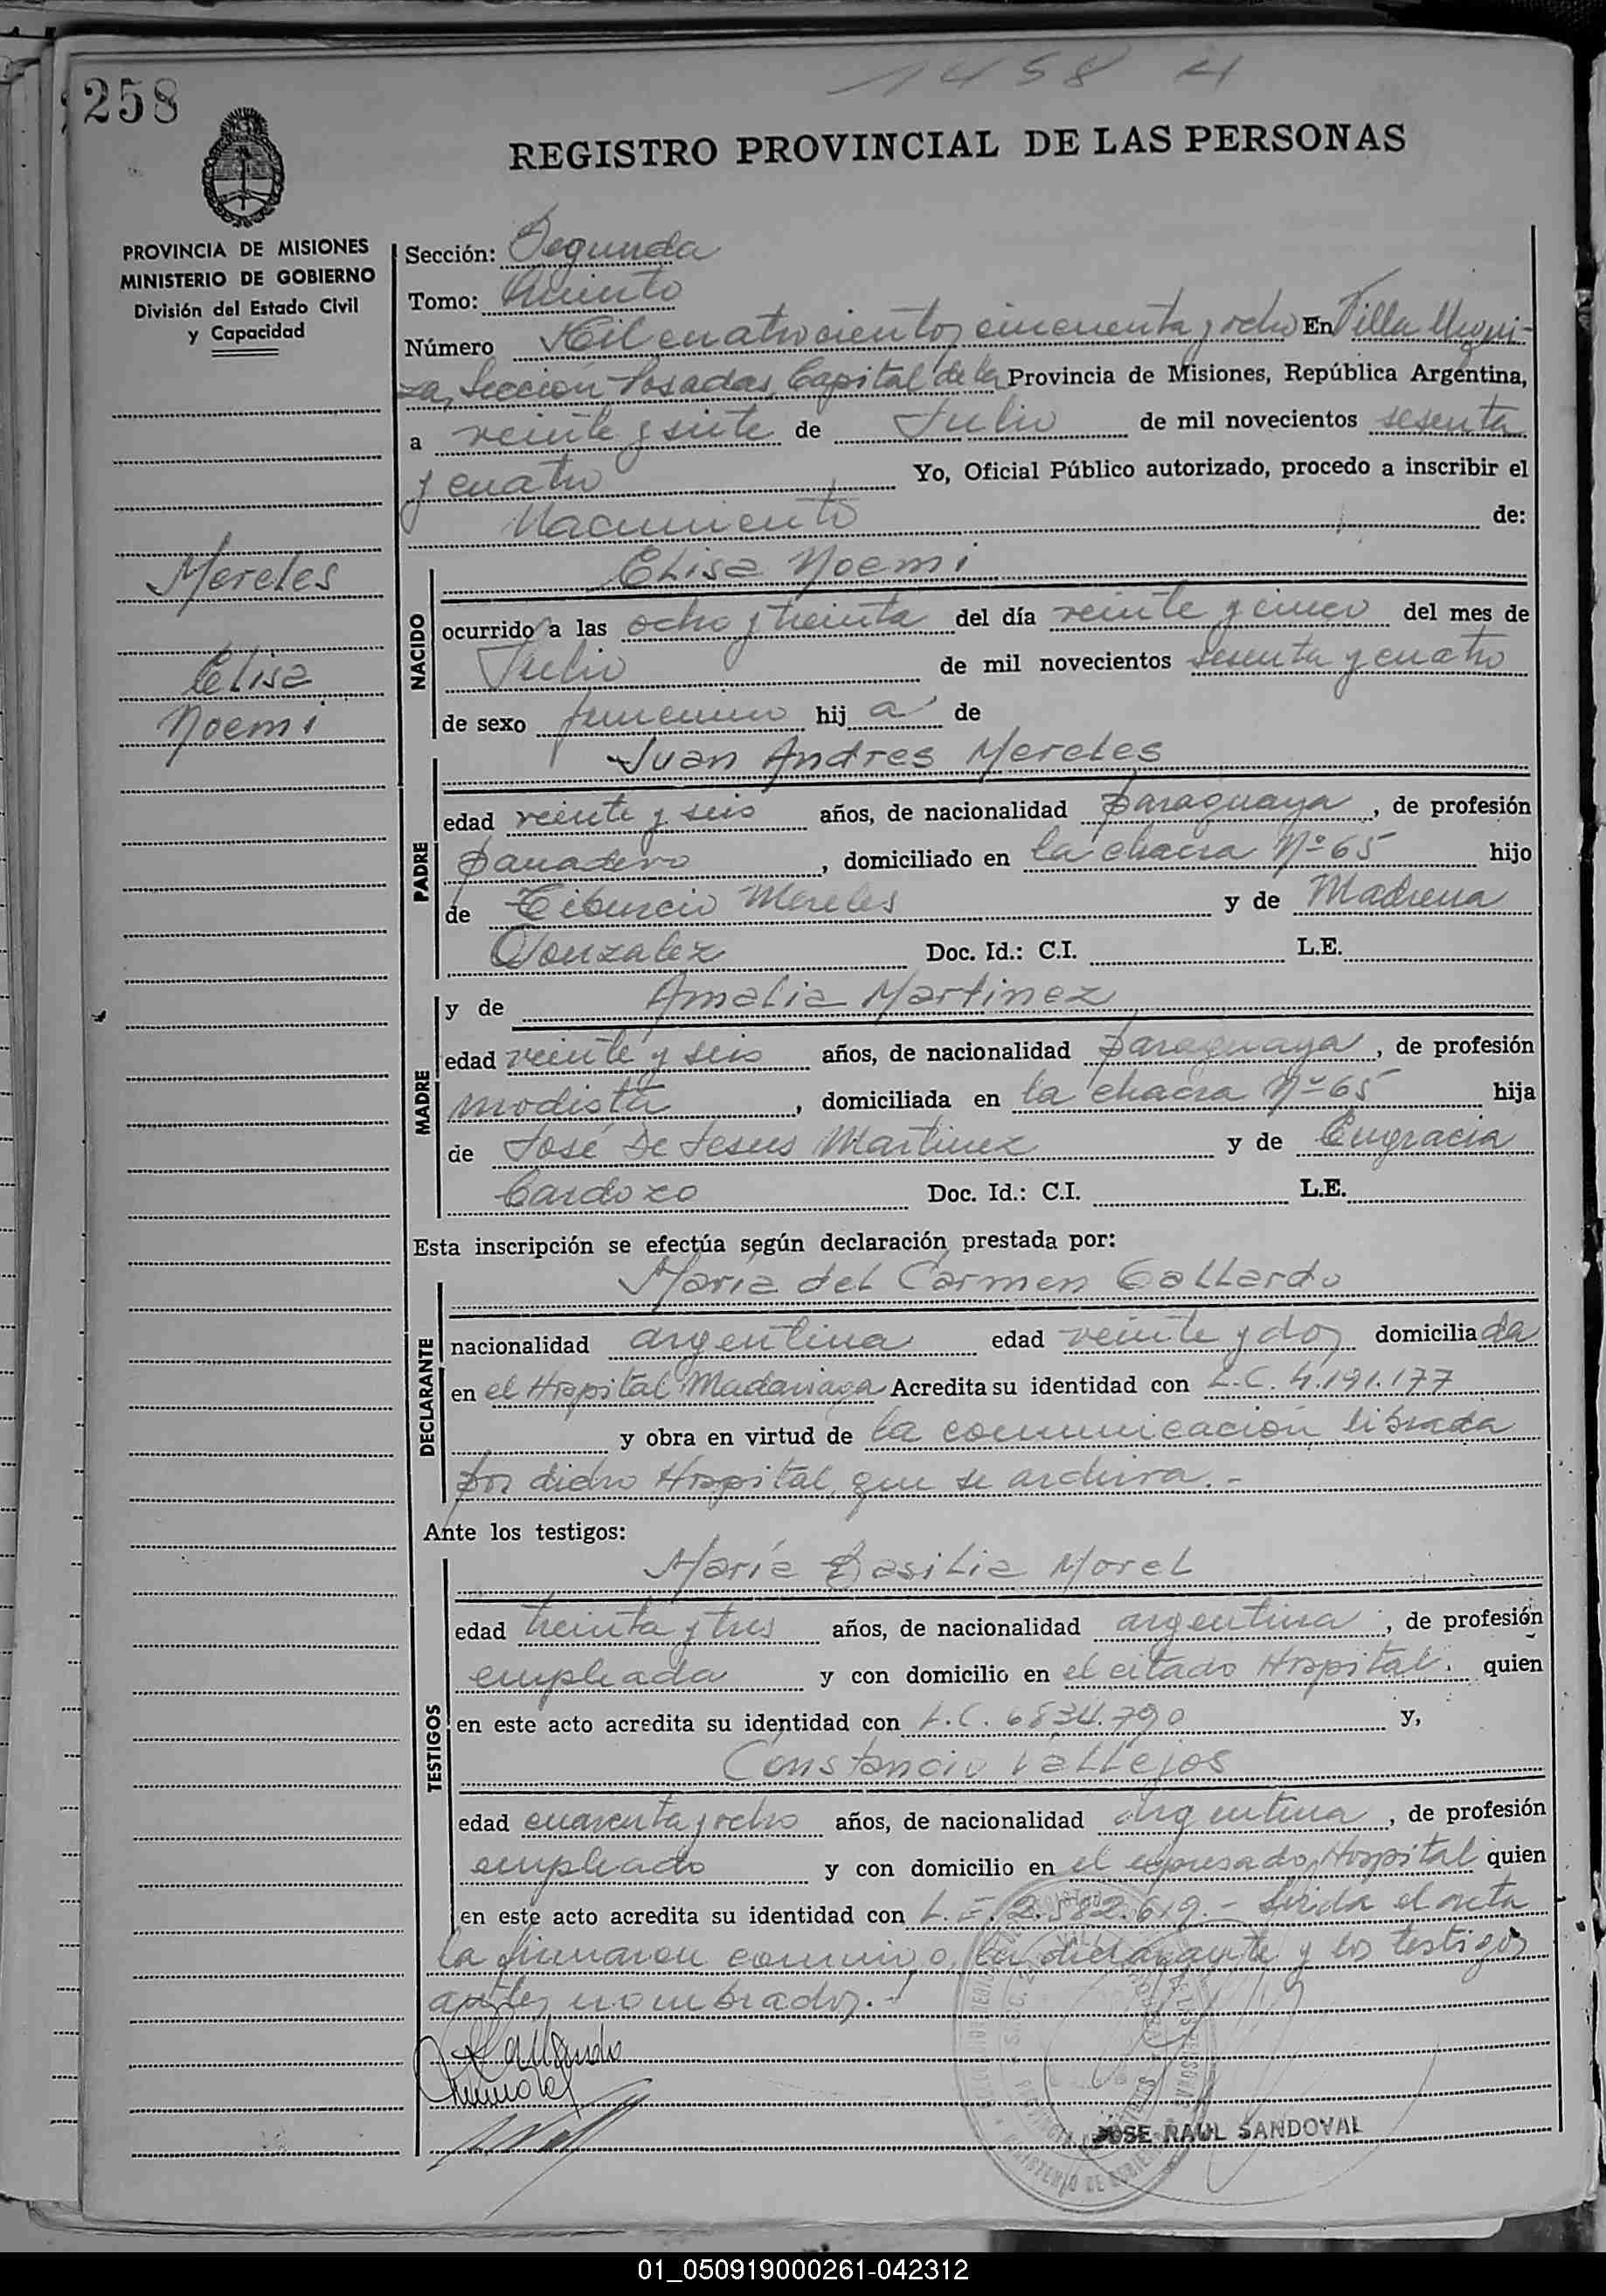 1458 H
258
REGISTRO PROVINCIAL DE LAS PERSONAS
PROVINCIA DE MISIONES
MINISTERIO DE GOBIERNO
División del Estado Civil
y Capacidad
Mereles
Elisa
Noemi
Sección: Segunda
Tomo: Quinto
Número Mil cuatrocientos cincuenta y ocho En Villa Urqui-
za, Sección Posadas, Capital de la Provincia de Misiones, República Argentina,
a veinte y siete de Julio de mil novecientos sesenta
y cuatro Yo, Oficial Público autorizado, procedo a inscribir el
Nacimiento de:
NACIDO
Elisa Noemi
ocurrido a las ocho y treinta del día veinte y cinco del mes de
Julio de mil novecientos sesenta y cuatro
de sexo femenino hij a de
PADRE
Juan Andres Mereles
edad veinte y seis años, de nacionalidad paraguaya, de profesión
panadero, domiciliado en la chacra Nº 65 hijo
de Tiburcio Mereles y de Madrena
Gonzalez Doc. Id.: C.I. L.E.
MADRE
y de Amalia Martinez
edad veinte y seis años, de nacionalidad paraguaya, de profesión
modista, domiciliada en la chacra Nº 65 hija
de José De Jesus Martinez y de Engracia
Cardozo Doc. Id.: C.I. L.E.
Esta inscripción se efectúa según declaración prestada por:
DECLARANTE
María del Carmen Gallardo
nacionalidad argentina edad veinte y dos domicilia da
en el Hospital Madariaga Acredita su identidad con L.C. 4.191.177
y obra en virtud de la comunicación librada
por dicho Hospital, que se archiva.-
Ante los testigos:
TESTIGOS
María Basilia Morel
edad treinta y tres años, de nacionalidad argentina, de profesión
empleada y con domicilio en el citado Hospital. quien
en este acto acredita su identidad con L.C. 6834.790 y,
Constancio Vallejos
edad cuarenta y ocho años, de nacionalidad argentina, de profesión
empleado y con domicilio en el expresado Hospital quien
en este acto acredita su identidad con L.E. 2.582.619.- Leida el acta
la firmaron conmigo, la declarante y los testigos
antes nombrados.-
Gallardo
JOSE RAUL SANDOVAL
01_050919000261-042312